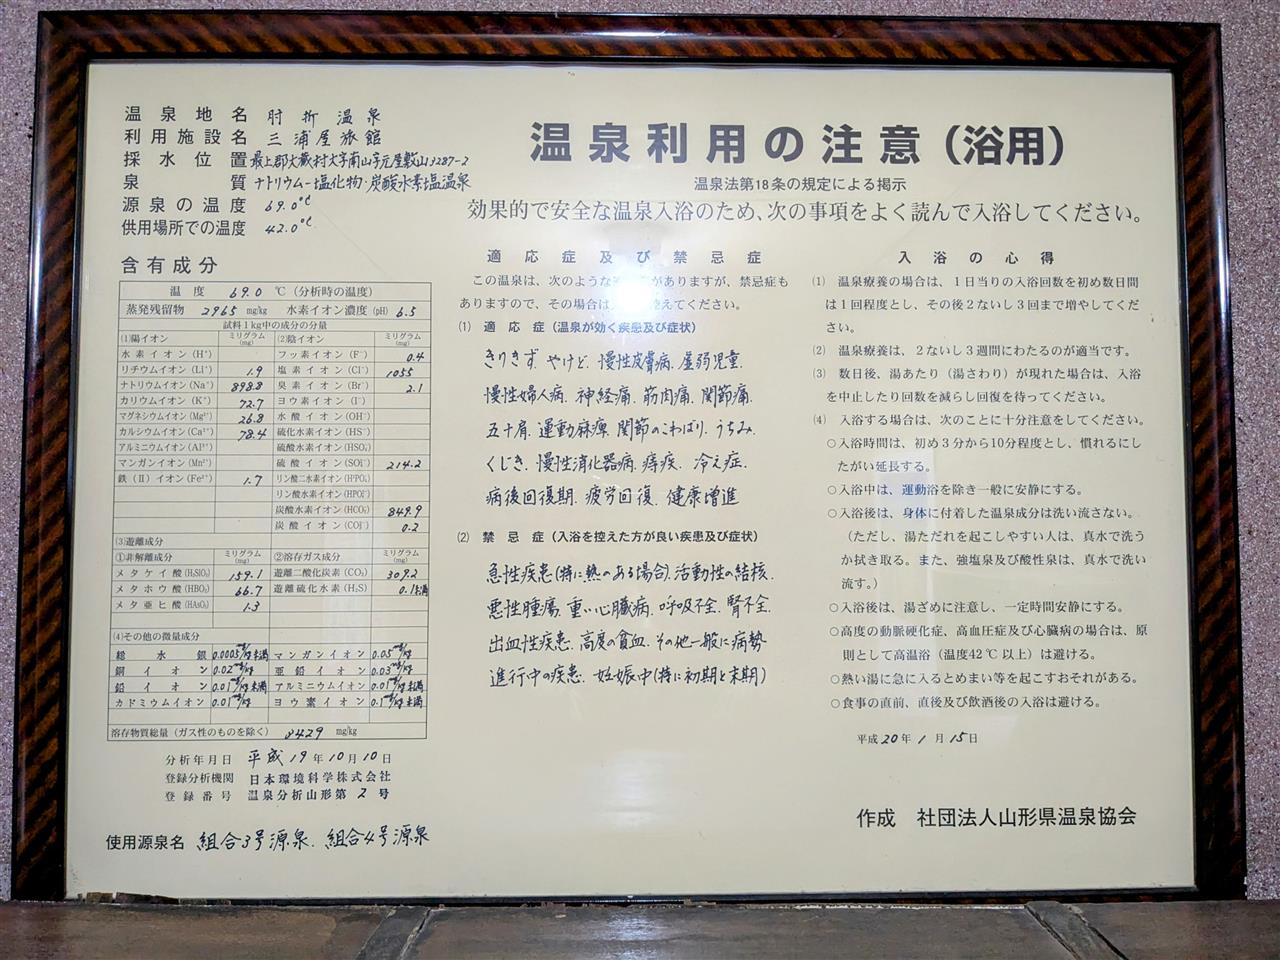 温泉地名 肘折温泉
利用施設名 三浦屋旅館
採水位置 最上郡大蔵村大字南山字元屋敷山3287-2
泉質 ナトリウム-塩化物・炭酸水素塩温泉
源泉の温度 69.0℃
供用場所での温度 42.0℃
含有成分
温度 69.0 ℃(分析時の温度)
蒸発残留物 2965 mg/kg 水素イオン濃度(pH) 6.5
試料1kg中の成分の分量
(1)陽イオン ミリグラム(mg) (2)陰イオン ミリグラム(mg)
水素イオン(H⁺) フッ素イオン(F⁻) 0.4
リチウムイオン(Li⁺) 1.9 塩素イオン(Cl⁻) 1055
ナトリウムイオン(Na⁺) 898.8 臭素イオン(Br⁻) 2.1
カリウムイオン(K⁺) 72.7 ヨウ素イオン(I⁻)
マグネシウムイオン(Mg²⁺) 26.8 水酸イオン(OH⁻)
カルシウムイオン(Ca²⁺) 78.4 硫化水素イオン(HS⁻)
アルミニウムイオン(Al³⁺) 硫酸水素イオン(HSO₄⁻)
マンガンイオン(Mn²⁺) 硫酸イオン(SO₄²⁻) 214.2
鉄(II)イオン(Fe²⁺) 1.7 リン酸二水素イオン(H₂PO₄⁻)
リン酸水素イオン(HPO₄²⁻)
炭酸水素イオン(HCO₃⁻) 849.9
炭酸イオン(CO₃²⁻) 0.2
(3)遊離成分
①非解離成分 ミリグラム(mg) ②溶存ガス成分 ミリグラム(mg)
メタケイ酸(H₂SiO₃) 159.1 遊離二酸化炭素(CO₂) 309.2
メタホウ酸(HBO₂) 66.7 遊離硫化水素(H₂S) 0.1未満
メタ亜ヒ酸(HAsO₂) 1.3
(4)その他の微量成分
総水銀 0.0005mg/kg未満 マンガンイオン 0.05mg/kg
銅イオン 0.02mg/kg 亜鉛イオン 0.03mg/kg
鉛イオン 0.01mg/kg未満 アルミニウムイオン 0.01mg/kg未満
カドミウムイオン 0.01mg/kg ヨウ素イオン 0.1mg/kg未満
溶存物質総量(ガス性のものを除く) 3429 mg/kg
分析年月日 平成19年10月10日
登録分析機関 日本環境科学株式会社
登録番号 温泉分析山形第2号
使用源泉名 組合3号源泉. 組合4号源泉
温泉利用の注意(浴用)
温泉法第18条の規定による掲示
効果的で安全な温泉入浴のため、次の事項をよく読んで入浴してください。
適応症及び禁忌症
この温泉は、次のような がありますが、禁忌症も
ありますので、その場合は 控えてください。
(1) 適応症(温泉が効く疾患及び症状)
きりきず. やけど. 慢性皮膚病. 虚弱児童.
慢性婦人病. 神経痛. 筋肉痛. 関節痛.
五十肩. 運動麻痺. 関節のこわばり. うちみ.
くじき. 慢性消化器病. 痔疾. 冷え症.
病後回復期. 疲労回復. 健康増進
(2) 禁忌症(入浴を控えた方が良い疾患及び症状)
急性疾患(特に熱のある場合). 活動性の結核.
悪性腫瘍. 重い心臓病. 呼吸不全. 腎不全.
出血性疾患. 高度の貧血. その他一般に病勢
進行中の疾患. 妊娠中(特に初期と末期)
入浴の心得
(1) 温泉療養の場合は、1日当りの入浴回数を初め数日間
は1回程度とし、その後2ないし3回まで増やしてくだ
さい。
(2) 温泉療養は、2ないし3週間にわたるのが適当です。
(3) 数日後、湯あたり(湯さわり)が現れた場合は、入浴
を中止したり回数を減らし回復を待ってください。
(4) 入浴する場合は、次のことに十分注意をしてください。
○入浴時間は、初め3分から10分程度とし、慣れるにし
たがい延長する。
○入浴中は、運動浴を除き一般に安静にする。
○入浴後は、身体に付着した温泉成分は洗い流さない。
(ただし、湯ただれを起こしやすい人は、真水で洗う
か拭き取る。また、強塩泉及び酸性泉は、真水で洗い
流す。)
○入浴後は、湯ざめに注意し、一定時間安静にする。
○高度の動脈硬化症、高血圧症及び心臓病の場合は、原
則として高温浴(温度42℃以上)は避ける。
○熱い湯に急に入るとめまい等を起こすおそれがある。
○食事の直前、直後及び飲酒後の入浴は避ける。
平成20年1月15日
作成 社団法人山形県温泉協会